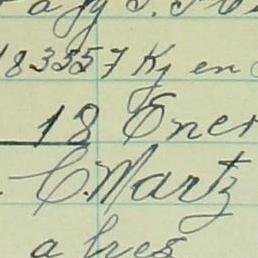 183557 Kg en
18 Ener
C. Martz
a fres